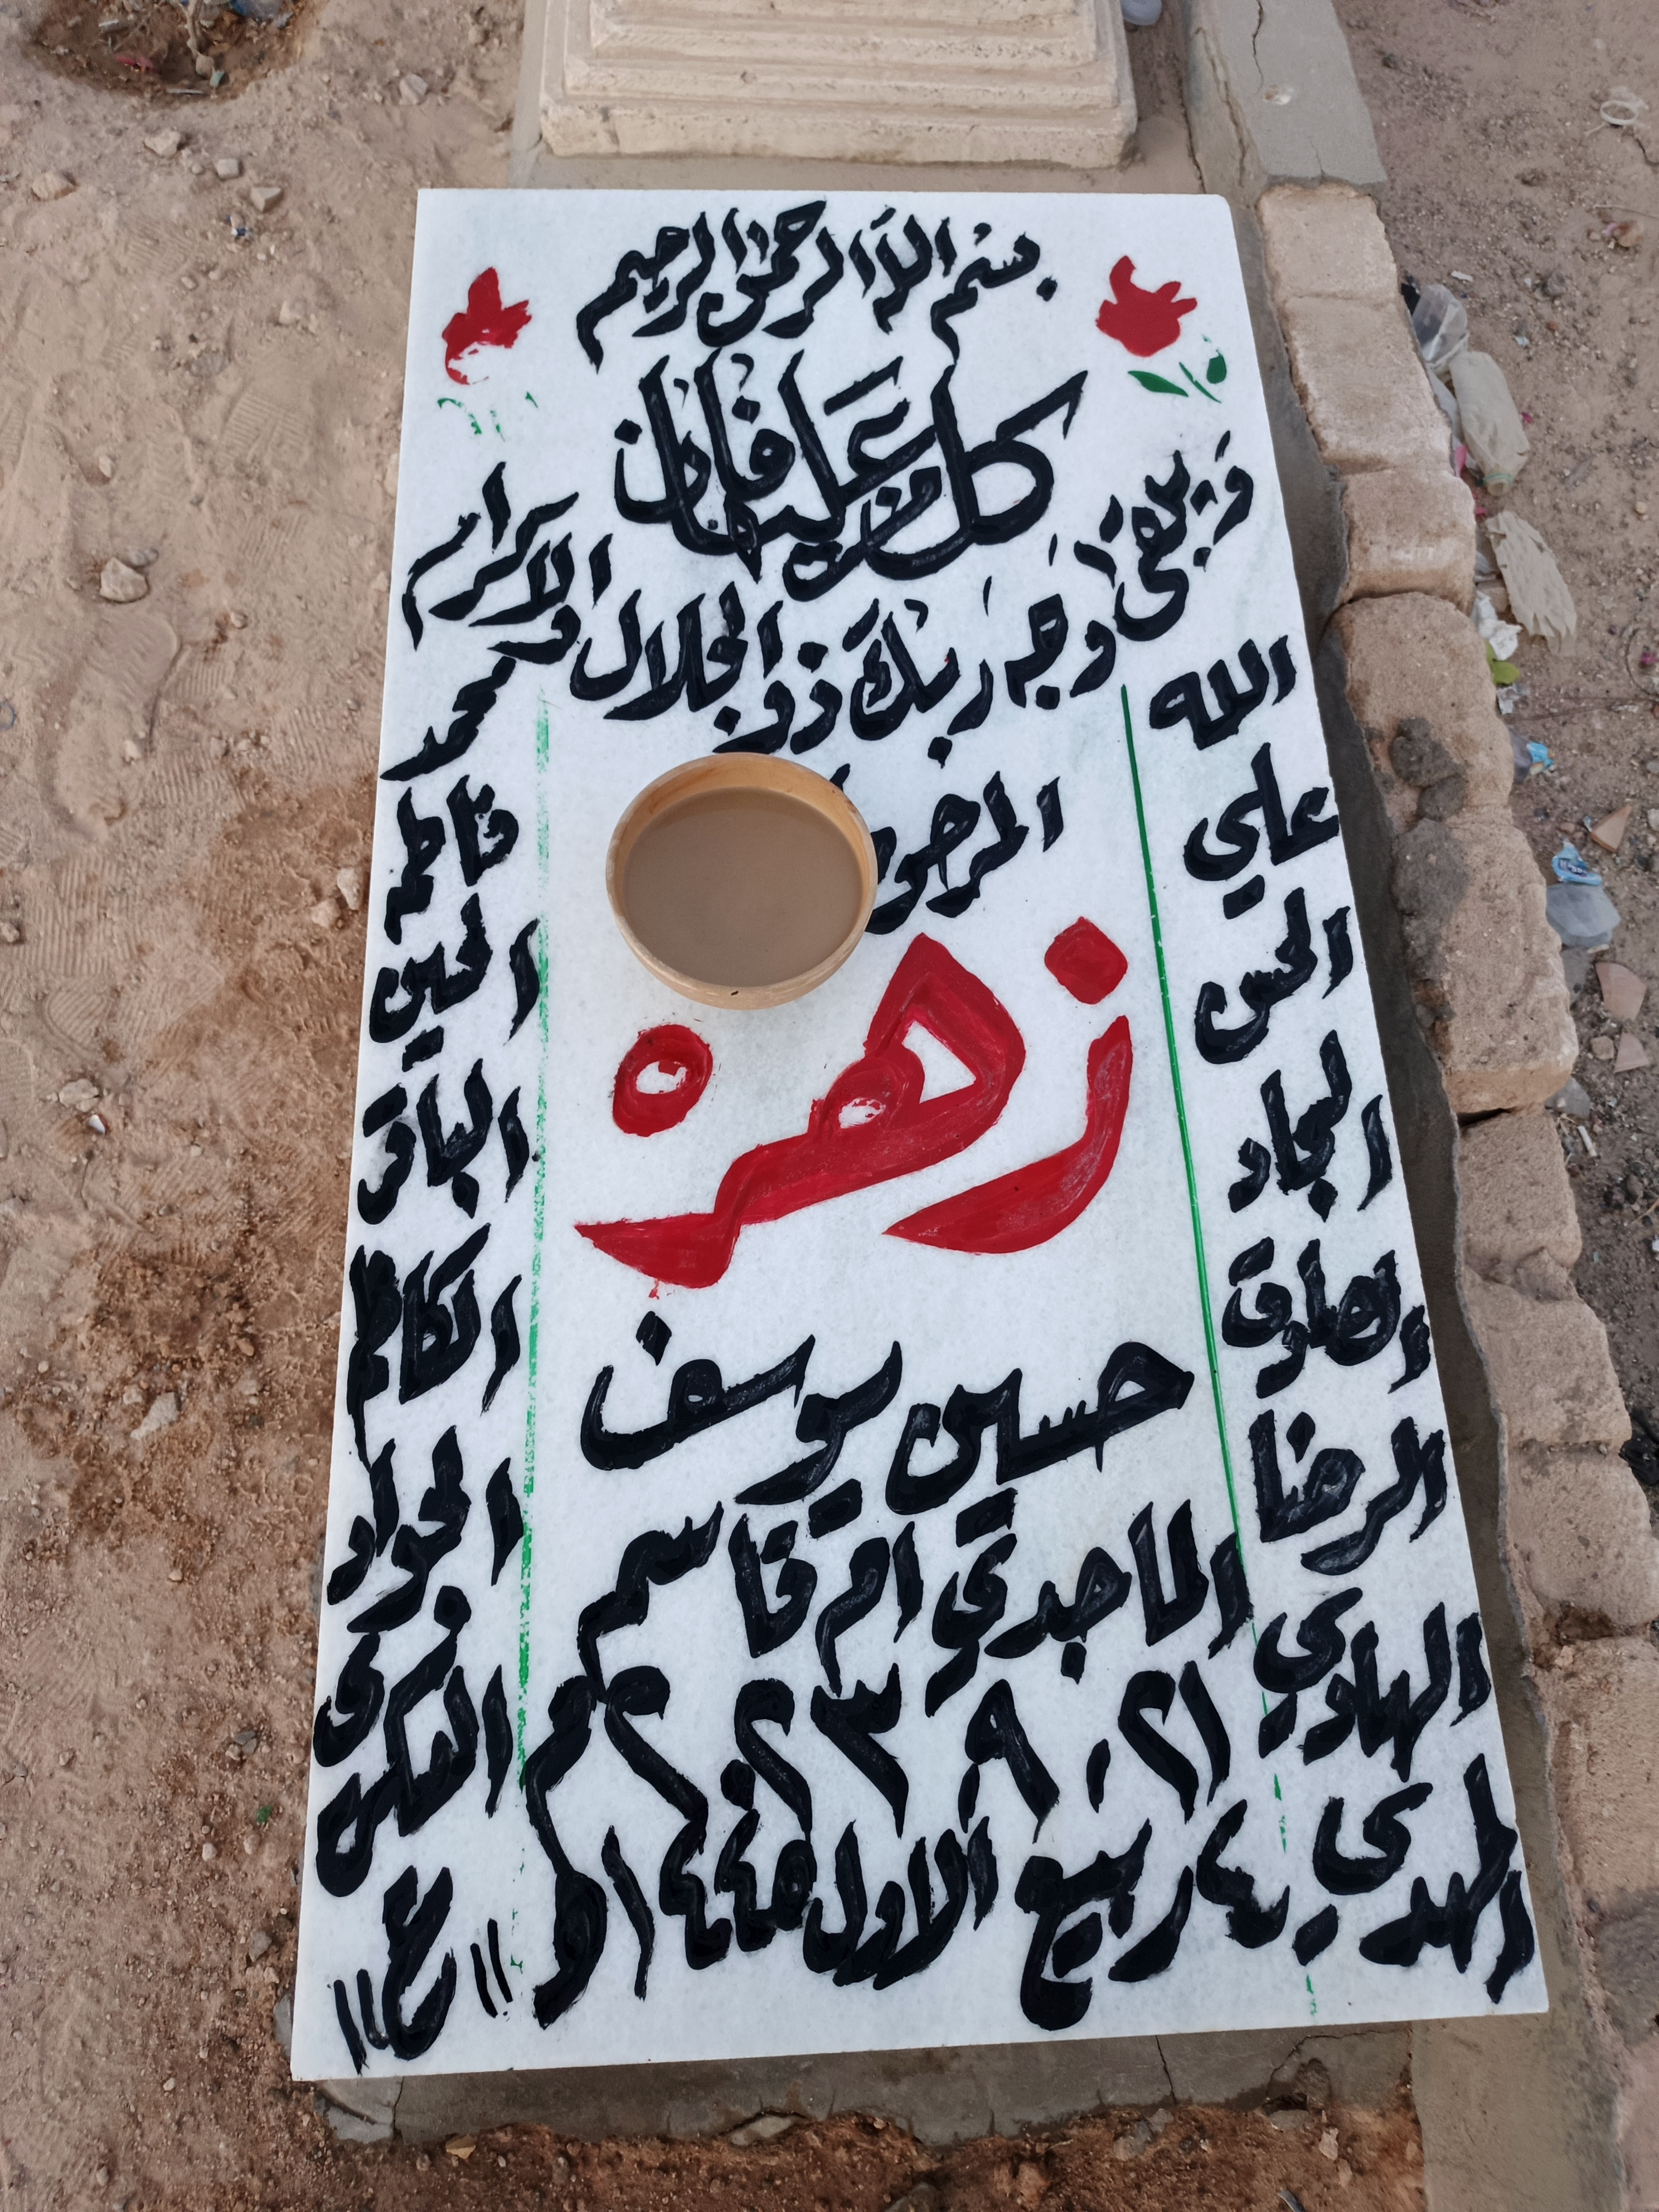 بسم الله الرحمن الرحيم
كل من عليها فان
ويبقى وجه ربك ذو الجلال والاكرام
الله
محمد
علي
فاطمه
الحسن
الحسين
السجاد
الباقر
الصادق
الكاظم
الرضا
الجواد
الهادي
العسكري
المهدي
زهرة
حسين يوسف
الماجدي ام قاسم
٢١ . ٩ . ٢٠٢٣ م
٤ ربيع الاول ١٤٤٥ هـ
"ع"